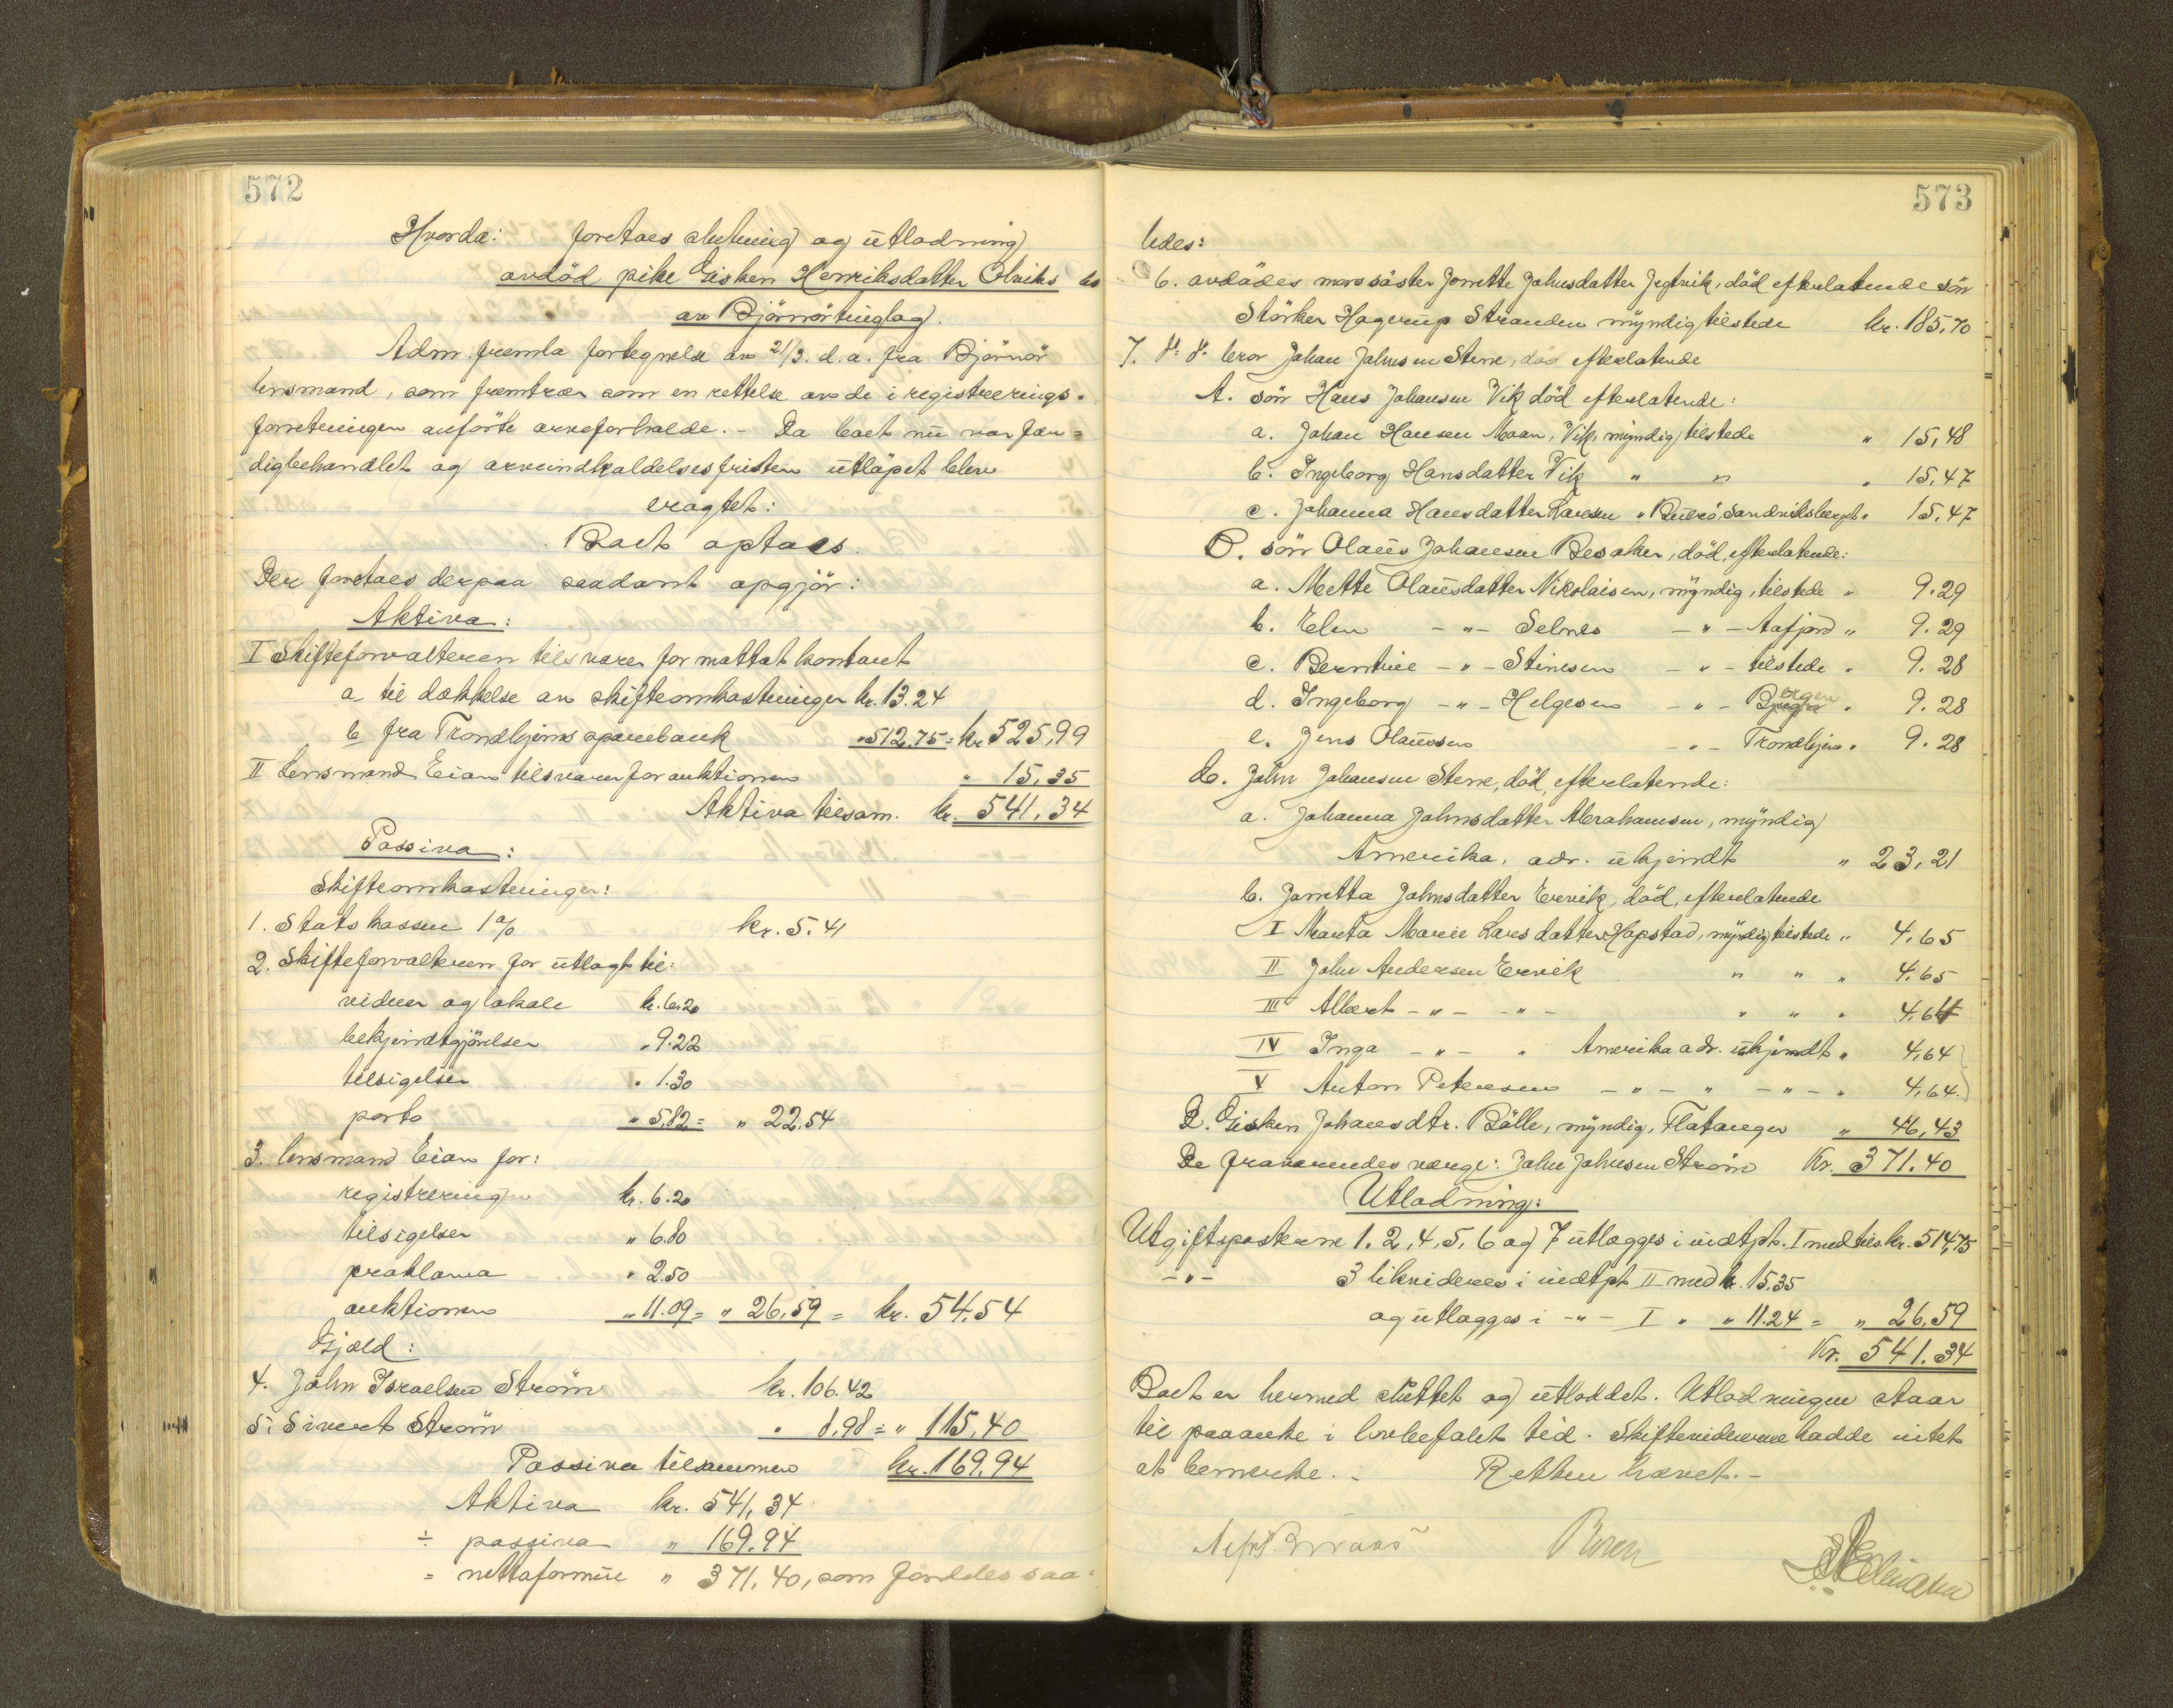 572
Hvorda: foretaes slutning og utlodning
avdöd pike Gisken Henriksdatter Olviks bo
av Björnör tinglag.
Adm. fremla fortegnelse av 21/3. d.a. fra Björnör
lensmand, som fremtrær som en rettelse av de i registrerings-
forretningen anförte arveforholde. - Da boet nu var fær=
digbehandlet og arveindkaldelsesfristen utlöpet blev
eragtet:
Boet optaes
Der foretaes derpaa saadant opgjör:
Aktiva:
I Skifteforvalteren tilsvarer for mottat kontant
a til dækkelse av skifteomkostninger kr. 13.24
b fra Trondhjems sparebank " 512.75 = kr 525,99
II Lensmand Eian tilsvarer for auktionen " 15,35
Aktiva tilsam. kr. 541,34
Passiva:
Skifteomkostninger:
1. Statskassen 1% kr. 5.41
2. Skifteforvalteren for utlagt til:
vidner og lokale kr. 6.20
bekjendtgjörelser " 9.22
tilsigelser " 1.30
porto " 5,82 = " 22.54
3. lensmand Eian for:
registrering kr. 6.20
tilsigelser " 6.80
proklama " 2.50
auktionen " 11.09 = " 26,59 = kr. 54,54
Gjæld:
4. John Israelsen Ström kr. 106.42
5. Sivert Ström " 8.98 = " 115,40
Passiva tilsammen kr. 169,94
Aktiva kr. 541,34
÷ passiva " 169.94
= nettoformue " 371,40, som fordeles saa=
573
ledes:
6. avdödes morssöster Jonette Johnsdatter Jegtvik, död efterlatende sön
Störker Hagerup Stranden myndig tilstede kr. 185,70
7. d: d: bror Johan Johnsen Stene, död efterlatende
A. sön Hans Johansen Vik död efterlatende:
a. Johan Hansen Moan, Vik, myndig tilstede " 15,48
b. Ingeborg Hansdatter Vik " " " 15,47
c. Johanna Hansdatter Hansen " Buerö, Sandviksberget " 15,47
B. sön Olaus Johansen Besaker, död, efterlatende:
a. Mette Olausdatter Nikolaisen, myndig, tilstede " 9.29
b. Elen - " - Selnes - " - Aafjord " 9.29
c. Berntine - " - Stinesen - " - tilstede " 9.28
d. Ingeborg - " - Helgesen - " - Bergen " 9.28
e. Jens Olaussen - " - Trondhjem " 9.28
C. John Johansen Stene, död, efterlatende:
a. Johanna Johnsdatter Abrahamsen, myndig
Amerika, adr. ukjendt " 23,21
b. Jonetta Johnsdatter Ervik, död, efterlatende
I Marita Marie Larsdatter Hopstad, myndig tilstede " 4,65
II John Andersen Ervik " " " 4,65
III Albert - " - - " - " " " 4,64
IV Inga - " - " Amerika adr. ukjendt " 4,64
V Anton Petersen - " - " - " - " 4,64
D. Gisken Johansdtr. Bölle, myndig, Flatanger " 46,43
De fraværendes værge: John Johnsen Ström Kr. 371.40
Utlodning:
Utgiftsposterne 1. 2, 4, 5, 6 og 7 utlægges i indtpt. I med tils kr. 514,75
- " - 3 likvideres i indtpt II med kr. 15,35
og utlægges i - " - I " " 11.24 = " 26,59
Kr. 541.34
Boet er hermed sluttet og utloddet. Utlodningen staar
til paaanke i lovbefalet tid. Skiftevidnerne hadde intet
at bemerke. - Retten hævet. -